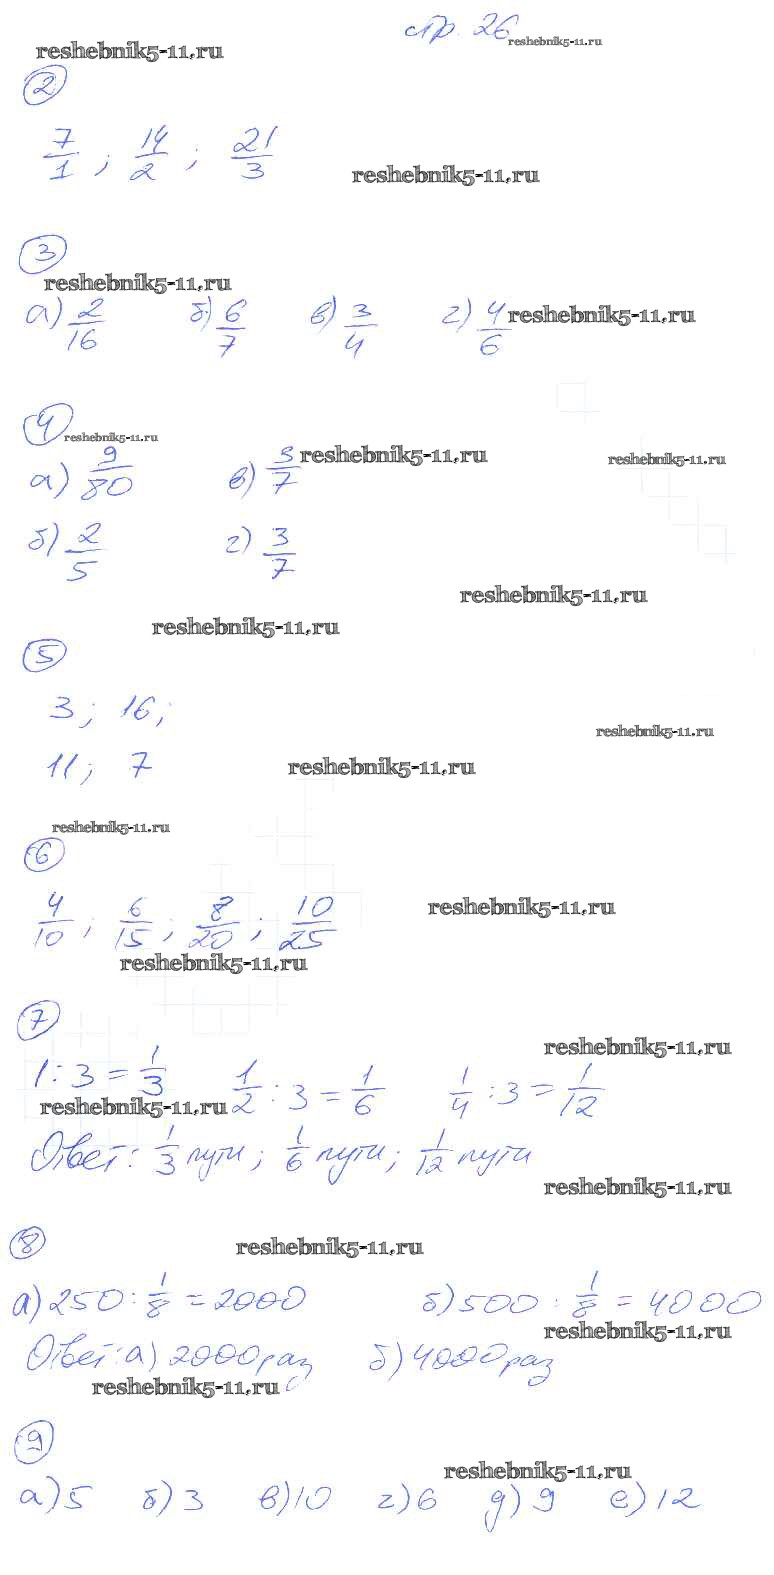 стр. 26 reshebnik5-11.ru
reshebnik5-11.ru
2
7/1 ; 14/2 ; 21/3
reshebnik5-11.ru
3
reshebnik5-11.ru
а) 2/16 б) 6/7 в) 3/4 г) 4/6 reshebnik5-11.ru
4 reshebnik5-11.ru
а) 9/80 в) 3/7 reshebnik5-11.ru reshebnik5-11.ru
б) 2/5 г) 3/7
reshebnik5-11.ru
reshebnik5-11.ru
5
3; 16;
reshebnik5-11.ru
11; 7 reshebnik5-11.ru
reshebnik5-11.ru
6
4/10 ; 6/15 ; 8/20 ; 10/25 reshebnik5-11.ru
reshebnik5-11.ru
7
reshebnik5-11.ru
1 : 3 = 1/3 1/2 : 3 = 1/6 1/4 : 3 = 1/12
reshebnik5-11.ru
Ответ: 1/3 пути; 1/6 пути; 1/12 пути
reshebnik5-11.ru
8 reshebnik5-11.ru
а) 250 : 1/8 = 2000 б) 500 : 1/8 = 4000
reshebnik5-11.ru
Ответ: а) 2000 раз б) 4000 раз
reshebnik5-11.ru
9
reshebnik5-11.ru
а) 5 б) 3 в) 10 г) 6 д) 9 е) 12